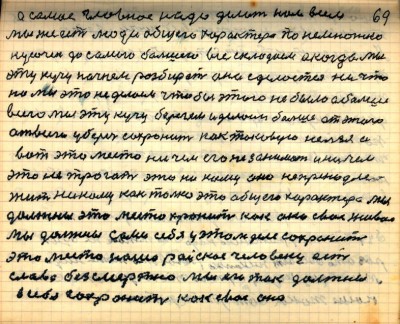 а самое главное надо делат нам всем 69
мы жедет люди общего характера по немножко
кусочек до самого балшего все складаем а когда мы
эту кучу начнем розбират она сделается не что
но мы это не делаем чтобы этого не было а балше
всего мы эту кучу бережем и делаем балше от этого
а твоего уберег сохранит как таковую нелзя а
вот это место ни чем его не занимат и ничем
это не трогат это ни кому оно непринодле-
жит никому как толко это общего характера мы
должны это место хронит как око свое живое
мы должны сами себя у этом деле сохранит
это место нашо райское человеку ант
слава безсмертно мы ей так должны
в себя сохранит как свое око